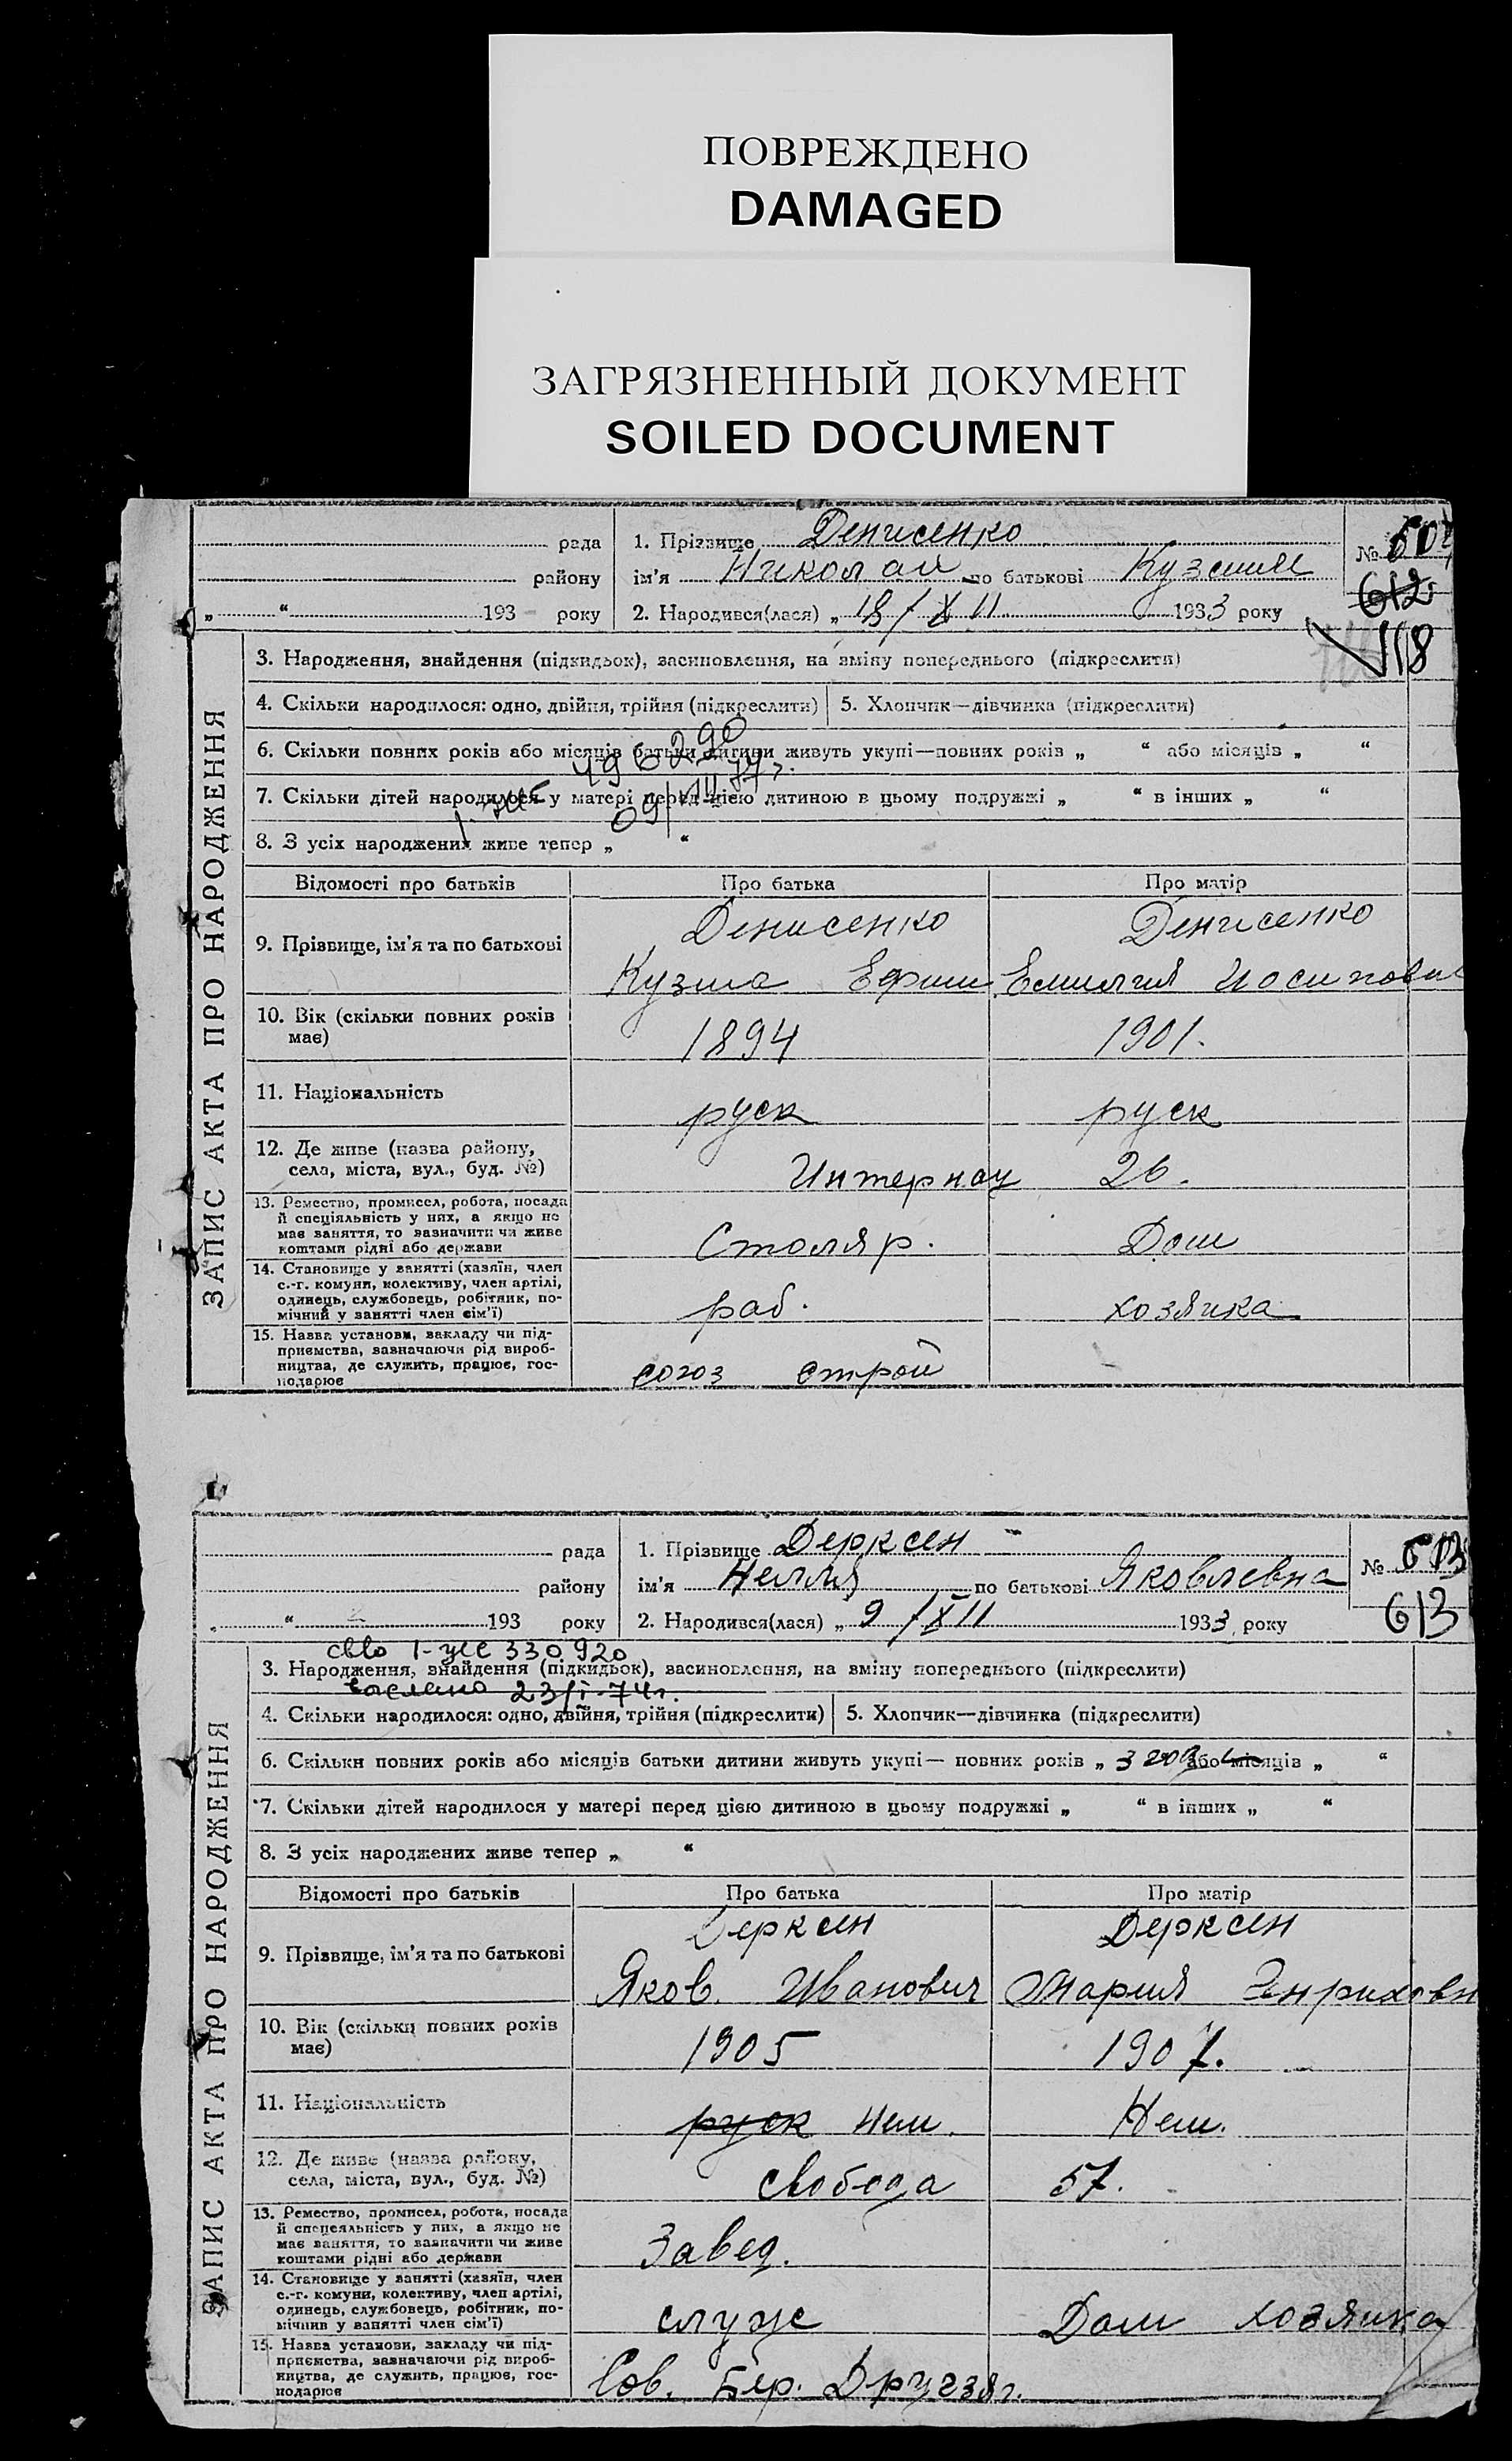 ПОВРЕЖДЕНО
DAMAGED
ЗАГРЯЗНЕННЫЙ ДОКУМЕНТ
SOILED DOCUMENT
ЗАПИС АКТА ПРО НАРОДЖЕННЯ
рада
району
„ “ 193 року
1. Прізвище Денисенко
ім'я Николай по батькові Кузмич
2. Народився(лася) „ 18/XII 1933 року
№
612
118
3. Народження, знайдення (підкидьок), засиновлення, на зміну попереднього (підкреслити)
4. Скільки народилося: одно, двійня, трійня (підкреслити) 5. Хлопчик—дівчинка (підкреслити)
6. Скільки повних років або місяців батьки дитини живуть укупі—повних років „ “ або місяців „ “
7. Скільки дітей народилося у матері перед цією дитиною в цьому подружжі „ “ в інших „ “
8. З усіх народжених живе тепер „ “
Відомості про батьків Про батька Про матір
9. Прізвище, ім'я та по батькові
Денисенко Денисенко
Кузма Ефим Емилия Иосипов
10. Вік (скільки повних років має) 1894 1901.
11. Національність руск руск
12. Де живе (назва району, села, міста, вул., буд. №) Интернац 26.
13. Ремество, промисел, робота, посада
й спеціяльність у них, а якщо не
має заняття, то зазначити чи живе
коштами рідні або держави
Столяр. Дом
14. Становище у занятті (хазяїн, член
с.-г. комуни, колективу, член артілі,
одинець, службовець, робітник, по-
мічний у занятті член сім'ї)
раб. хозяйка
15. Назва установи, закладу чи під-
приємства, зазначаючи рід вироб-
ництва, де служить, працює, гос-
подарює
союз строй
ЗАПИС АКТА ПРО НАРОДЖЕННЯ
рада
району
„ “ 193 року
1. Прізвище Дерксен
ім'я Нелля по батькові Яковлевна
2. Народився(лася) „ 9/XII 1933 року
№
613
св-во I-УЖС 330920
3. Народження, знайдення (підкидьок), засиновлення, на зміну попереднього (підкреслити)
23/I-74г.
4. Скільки народилося: одно, двійня, трійня (підкреслити) 5. Хлопчик—дівчинка (підкреслити)
6. Скільки повних років або місяців батьки дитини живуть укупі— повних років „ 3 або місяців „ “
7. Скільки дітей народилося у матері перед цією дитиною в цьому подружжі „ “ в інших „ “
8. З усіх народжених живе тепер „ “
Відомості про батьків Про батька Про матір
9. Прізвище, ім'я та по батькові
Дерксен Дерксен
Яков Иванович Мария Генриховн
10. Вік (скільки повних років має) 1905 1907.
11. Національність руск нем. Нем.
12. Де живе (назва району, села, міста, вул., буд. №) Свобода 57.
13. Ремество, промисел, робота, посада
й спецеяльність у них, а якщо не
має заняття, то зазначити чи живе
коштами рідні або держави
Завед.
14. Становище у занятті (хазяїн, член
с.-г. комуни, колективу, член артілі,
одинець, службовець, робітник, по-
мічний у занятті член сім'ї)
служ Дом хозяйка
15. Назва установи, закладу чи під-
приємства, зазначаючи рід вироб-
ництва, де служить, працює, гос-
подарює
Сов.